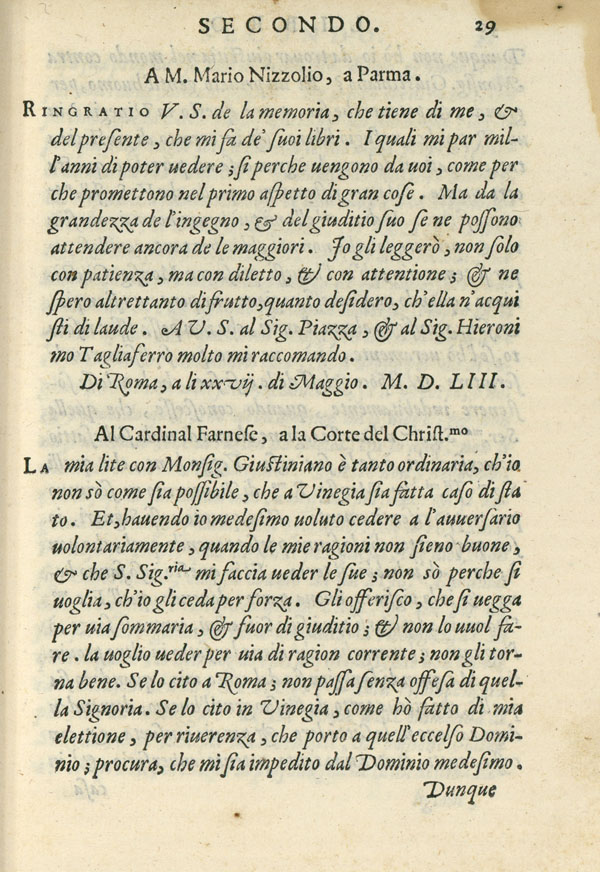 SECONDO. 29
A M. Mario Nizzolio, a Parma.
RINGRATIO V. S. de la memoria, che tiene di me, &
del preſente, che mi fa de' ſuoi libri. I quali mi par mil-
l'anni di poter uedere; ſi perche uengono da uoi, come per
che promettono nel primo aſpetto di gran coſe. Ma da la
grandezza de l'ingegno, & del giuditio ſuo ſe ne poſſono
attendere ancora de le maggiori. Io gli leggerò, non ſolo
con patienza, ma con diletto, & con attentione; & ne
ſpero altrettanto di frutto, quanto deſidero, ch'ella n'acqui
ſti di laude. A V. S. al Sig. Piazza, & al Sig. Hieroni
mo Tagliaferro molto mi raccomando.
Di Roma, a li xxvij. di Maggio. M. D. LIII.
Al Cardinal Farneſe, a la Corte del Chriſt.mo
LA mia lite con Monſig. Giuſtiniano è tanto ordinaria, ch'io
non sò come ſia poſſibile, che a Vinegia ſia fatta caſo di ſta
to. Et, hauendo io medeſimo uoluto cedere a l'auuerſario
uolontariamente, quando le mie ragioni non ſieno buone,
& che S. Sig.ria mi faccia ueder le ſue; non sò perche ſi
uoglia, ch'io gli ceda per forza. Gli offeriſco, che ſi uegga
per uia ſommaria, & fuor di giuditio; & non lo uuol fa-
re. la uoglio ueder per uia di ragion corrente; non gli tor-
na bene. Se lo cito a Roma; non paſſa ſenza offeſa di quel-
la Signoria. Se lo cito in Vinegia, come hò fatto di mia
elettione, per riuerenza, che porto a quell'eccelſo Domi-
nio; procura, che mi ſia impedito dal Dominio medeſimo.
Dunque